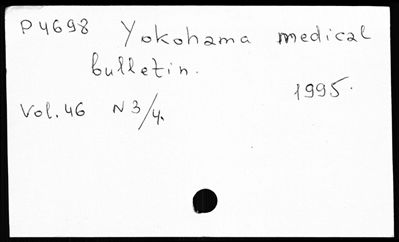 P4698 Yokohama medical
bulletin.
1995.
Vol. 46 N 3/4.